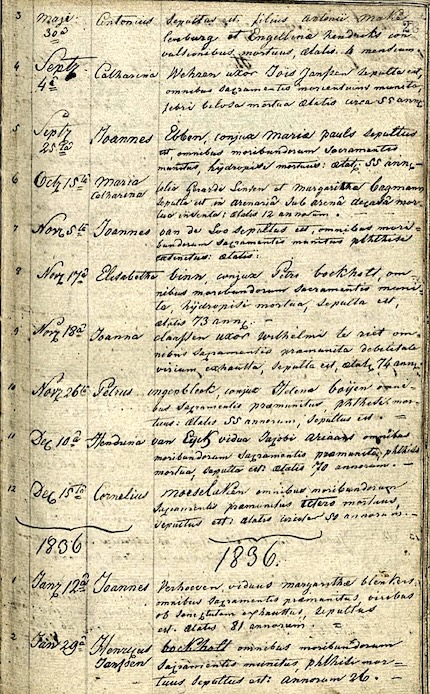 3 Maji 30a Antonius sepultus est filius Antonii Make
lenburg et Engelline hendriks con
vulsionibus mortuus, ætatis 4 mensium
4 Sept 4a Catharina Wehren uxor Jois Janssen sepulta est,
omnibus sacramentis morientium munita
febri mortua ætatis circa 55 ann
5 Sept 25ta Joannes Ebben, conjux Maria pauls sepultus
est omnibus moribundorum Sacramentis
munitus, hydropisi mortuus: ætat: 55 ann
6 Oct 15ta Maria Catharina filia Gerardi Linsen et Margaretha Cagmann
sepulta est in arenaria sub arena mor
tua inventa: ætatis 12 annorum.
7 Nov 5ta Joannes van de Loo sepultus est, omnibus mori
bundorum Sacramentis munitus phthise
extinctus: ætatis:
8 Nov 17a Elisabetha binn, conjux Petro bockholt, om
nibus moribundorum sacramentis muni
ta, hydropisi mortua, sepulta est,
ætatis 73 ann:
9 Nov 18a Joanna claassen uxor Wilhelmi te riet om
nibus Sacramentis præmunita debilitate
virium exhausta, sepulta est, ætat: 74 ann
10 Nov 26ta Petrus ingenblook, conjux Helena baijen omni
bus Sacramentis præmunitus, phthisi mor
tuus: ætatis 55 annorum, sepultus est. -
11 Dec 10a Hendrina van Eyck vidua Jacobi Ariaans omnibus
moribundorum Sacramentis præmunita, phthisi
mortua, sepulta est: ætatis 70 annorum. -
12 Dec 15ta Cornelius moeselaken omnibus moribundorum
Sacramentis præmunitus mortuus,
sepultus est: ætatis circa 50 annorum -
1836 1836.
1 Jan 12a Joannes Verhoeven, viduus margaretha blenkers,
omnibus sacramentis præmunitus, viribus
ob senectutem exhaustus, sepultus
est. ætatis 81 annorum
2 Jan 29a Henricus Janssen bockholt omnibus moribundorum
Sacramentis munitus, phthisi mor=
tuus, sepultus est: annorum 26. -